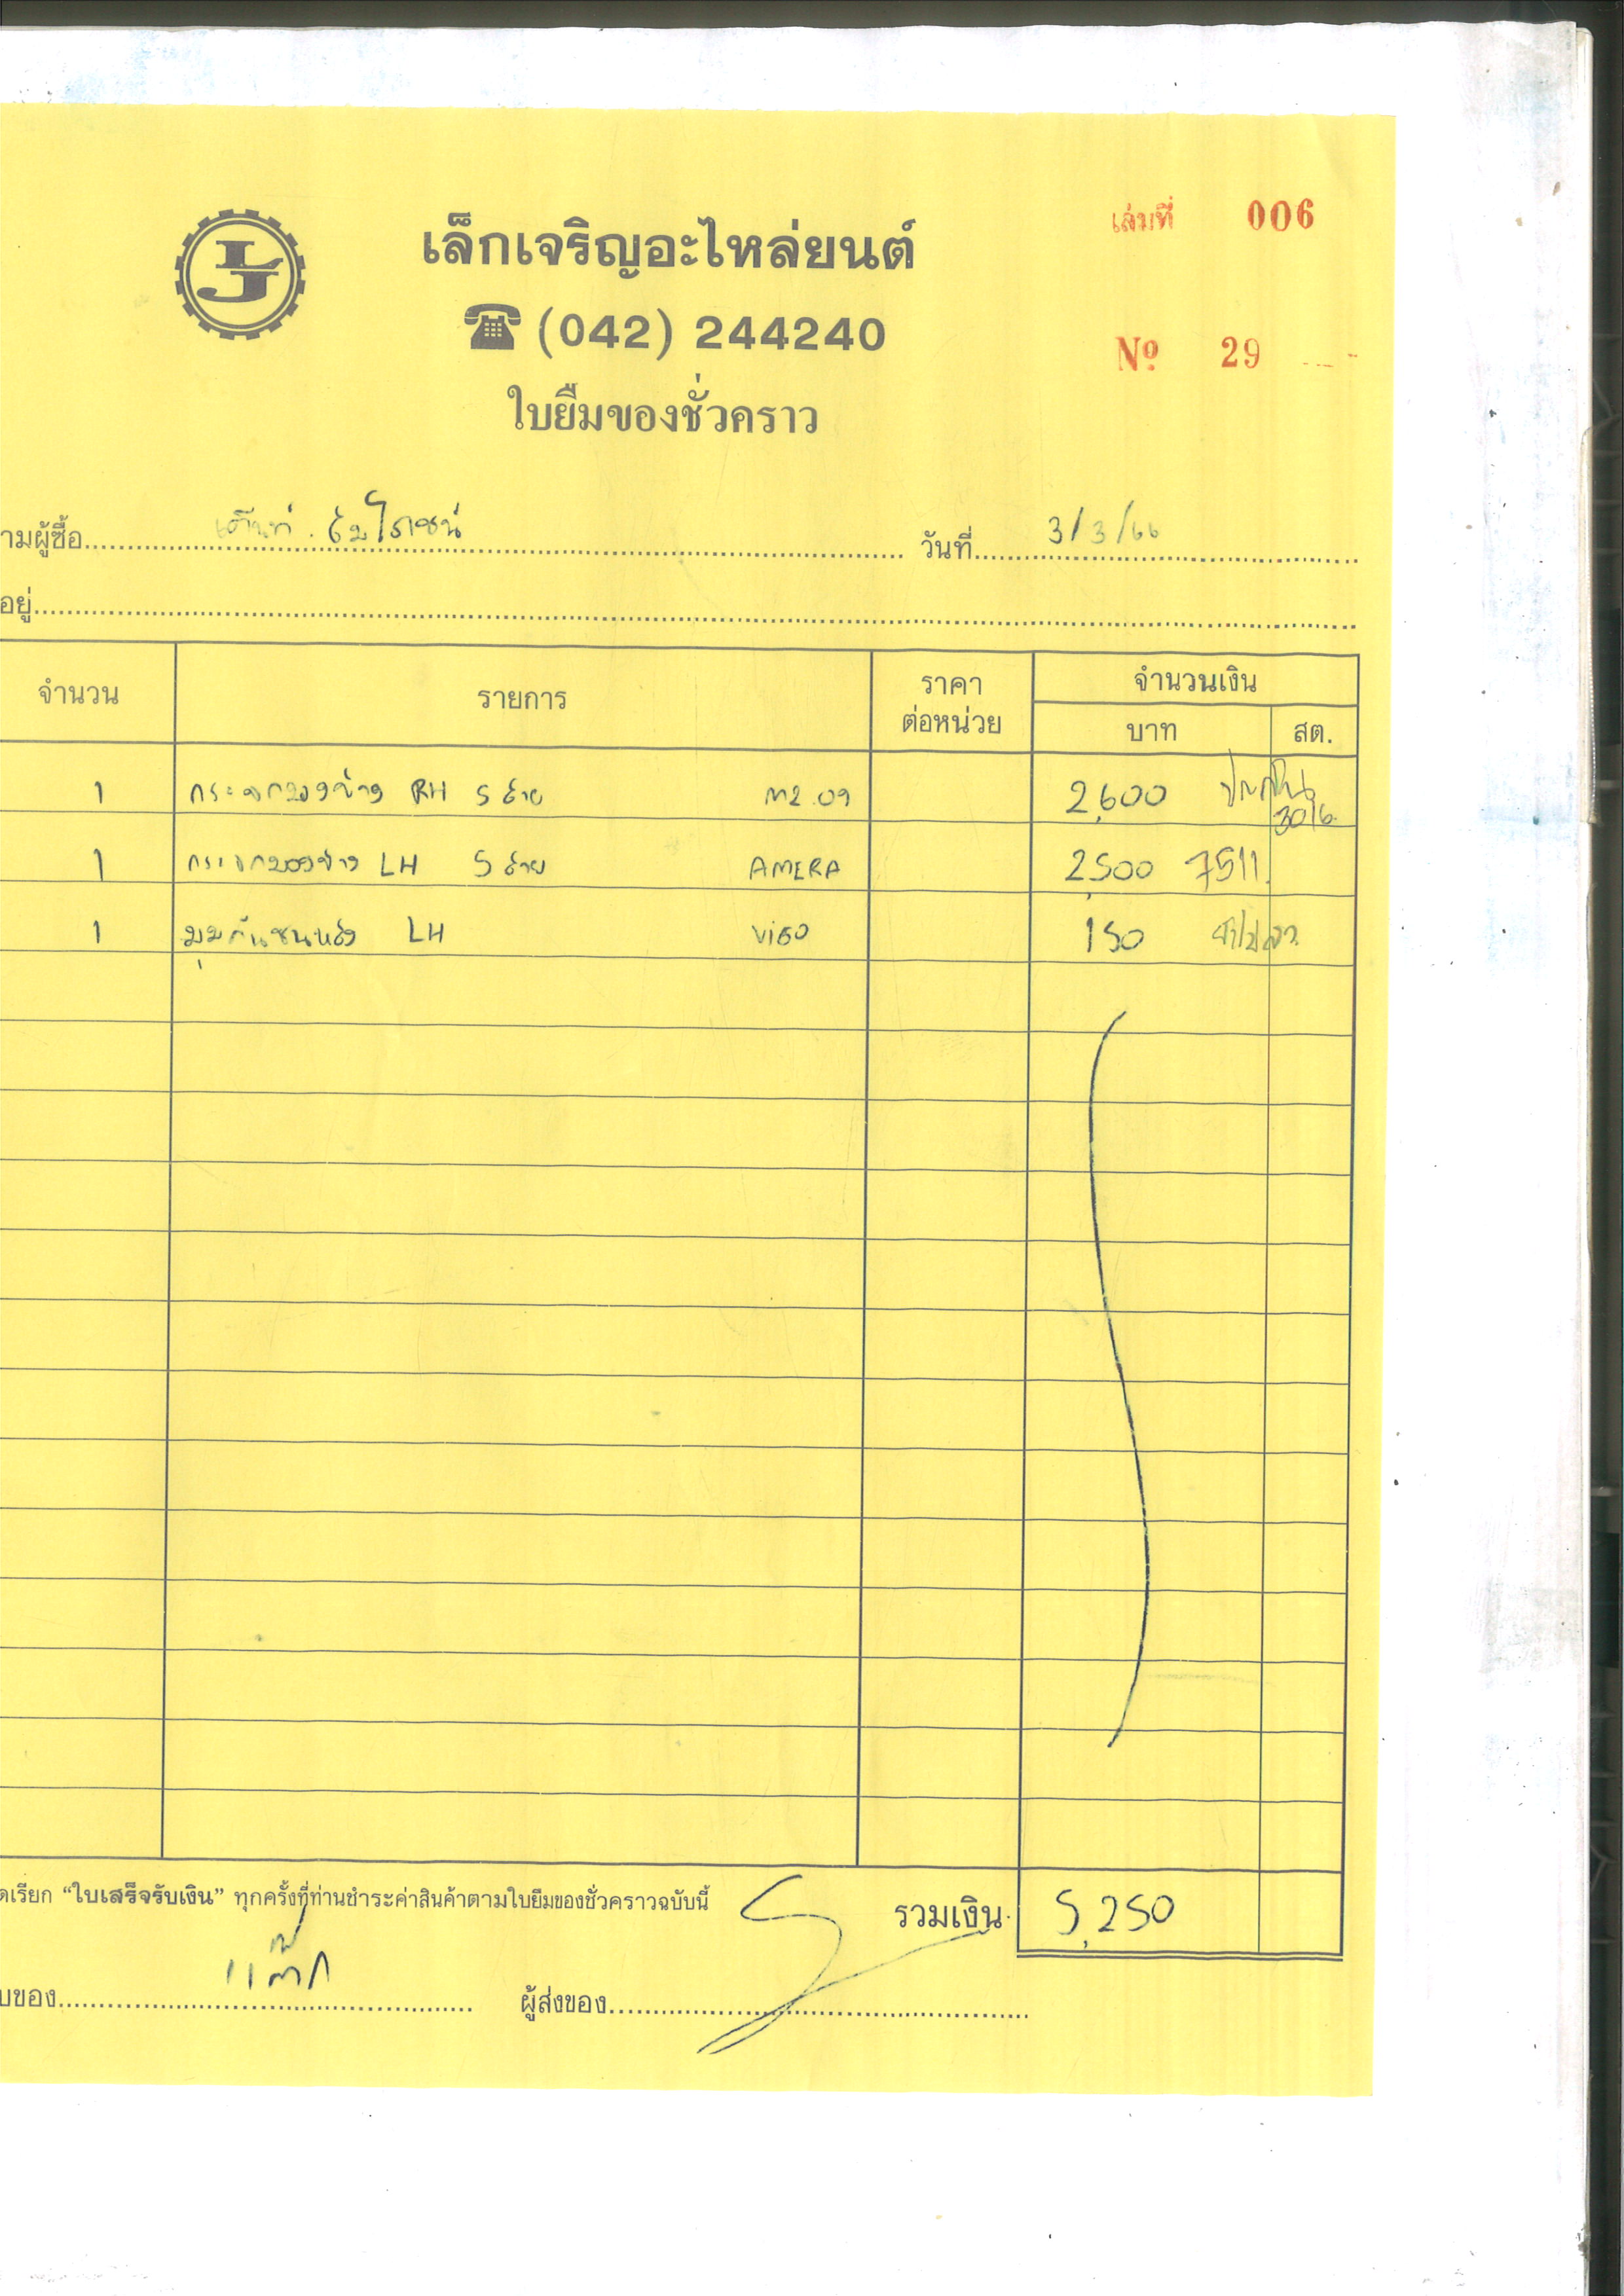 เล่มที่ 006
เล็กเจริญอะไหล่ยนต์
(042) 244240
Nº 29
ใบยืมของชั่วคราว
ามผู้ซื้อ เต็นท์ วันที่ 3/3/66
อยู่
จำนวน รายการ ราคาต่อหน่วย จำนวนเงิน
บาท สต.
1 กระจกมองข้าง RH 5 สาย M2.09 2,600
1 กระจกมองข้าง LH 5 สาย AMERA 2,500 7511
1 มุมกันชนหลัง LH VIGO 150
ดเรียก “ใบเสร็จรับเงิน” ทุกครั้งที่ท่านชำระค่าสินค้าตามใบยืมของชั่วคราวฉบับนี้
รวมเงิน 5,250
บของ ผู้ส่งของ